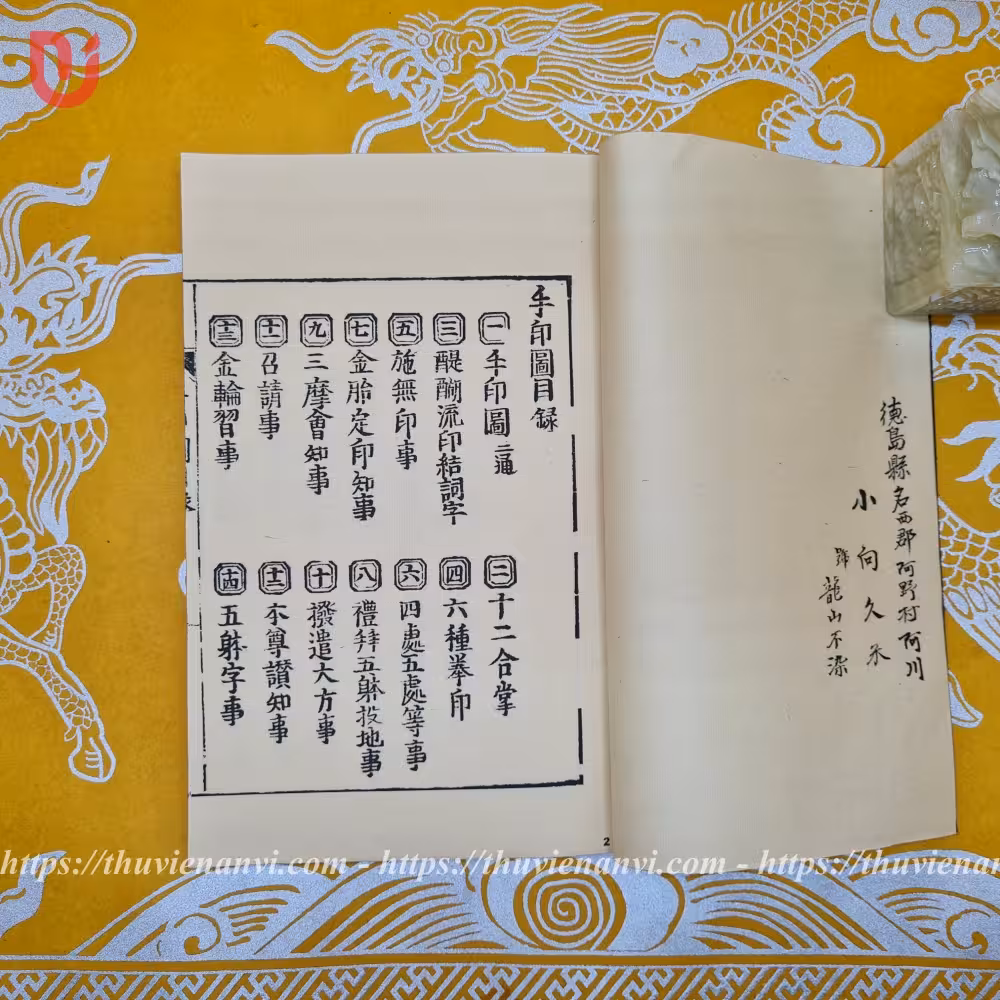 徳島縣名西郡阿野村阿川
小向久
號龍山不
手印圖目録
一 手印圖 二通
二 十二合掌
三 醍醐流印結詞字
四 六種拳印
五 施無印事
六 四處五處等事
七 金胎定印知事
八 禮拜五躰投地事
九 三摩會知事
十 撥遣大方事
十一 召請事
十二 本尊讃知事
十三 金輪習事
十四 五躰字事
2
https://thuvienanvi.com - https://thuvienanvi.com - https://thuvienanvi